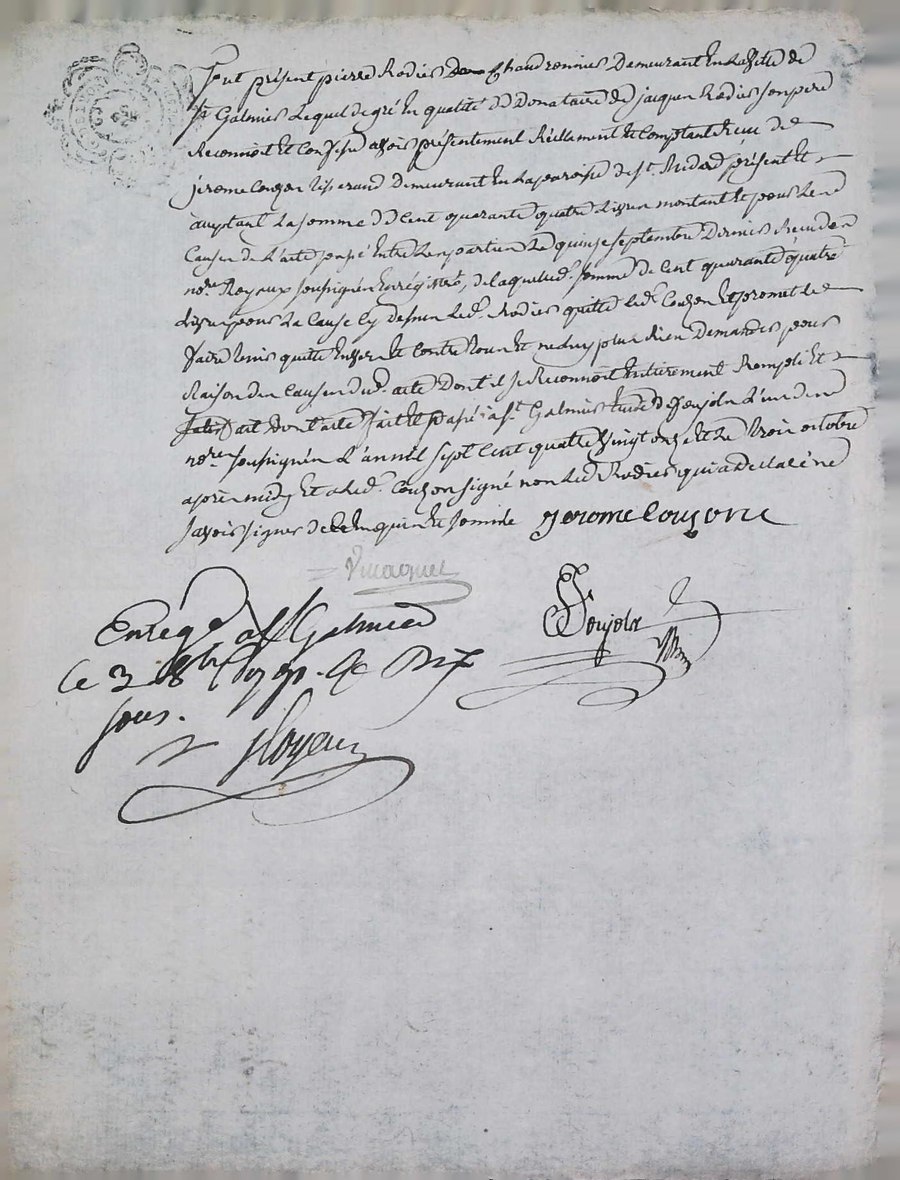 fut présent pierre Rodier Chaudronnier Demeurant En La ville de
st Galmier Lequel de gré En qualité de Donataire de jacques Rodier son pere
Reconnoit Et Confesse avoir présentement Réellement Et Comptant Receu de
jérome Couzon tisserand Demeurant En La paroisse de st. Médard présent Et
aceptant La somme de cent quarante quatre Livres montant Et pour Les
Causes de L'acte passé Entre Les parties Le quinze septembre Dernier Receu des
nores. Royaux soussignés Enrégistré, de laquelle de. somme de Cent quarante quatre
Livres pour La Cause Cy Dessus Led. Rodier quitte led. Couzon Et promet Le
faire tenir quitte Envers Et Contre tous Et ne luy plus Rien Demander pour
Raison des Causes dud. acte Dont il se Reconnoit Entierement Rempli Et
Satisfait dont acte fait Et passé a st Galmier Etude de Jeujoln L'un des
nores soussignés L'an mil sept Cent quatre vingt onze Et Le trois octobre
apres midy Et a Led. Couzon signé non Led Rodier qui a declaré ne
savoir signer de ce Enquis Et sommé Jerome Couzone
Enregé a st Galmier
le 3 8bre 1791. Rç Dix
sous.